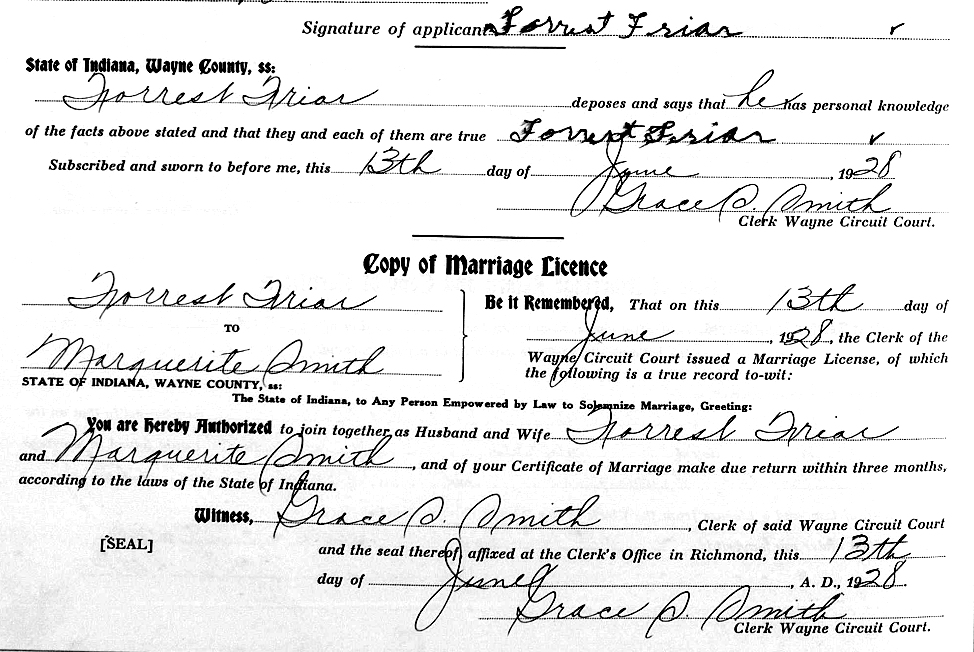 Signature of applicant Forrest Friar
State of Indiana, Wayne County, ss:
Forrest Friar deposes and says that he has personal knowledge
of the facts above stated and that they and each of them are true Forrest Friar
Subscribed and sworn to before me, this 13th day of June, 1928
Grace S. Smith
Clerk Wayne Circuit Court.
Copy of Marriage Licence
Forrest Friar
TO
Marguerite Smith
Be it Remembered, That on this 13th day of
June, 1928, the Clerk of the
Wayne Circuit Court issued a Marriage License, of which
the following is a true record to-wit:
STATE OF INDIANA, WAYNE COUNTY, ss:
The State of Indiana, to Any Person Empowered by Law to Solemnize Marriage, Greeting:
You are Hereby Authorized to join together as Husband and Wife Forrest Friar
and Marguerite Smith, and of your Certificate of Marriage make due return within three months,
according to the laws of the State of Indiana.
Witness, Grace S. Smith, Clerk of said Wayne Circuit Court
[SEAL] and the seal thereof affixed at the Clerk's Office in Richmond, this 13th
day of June, A. D., 1928.
Grace S. Smith
Clerk Wayne Circuit Court.